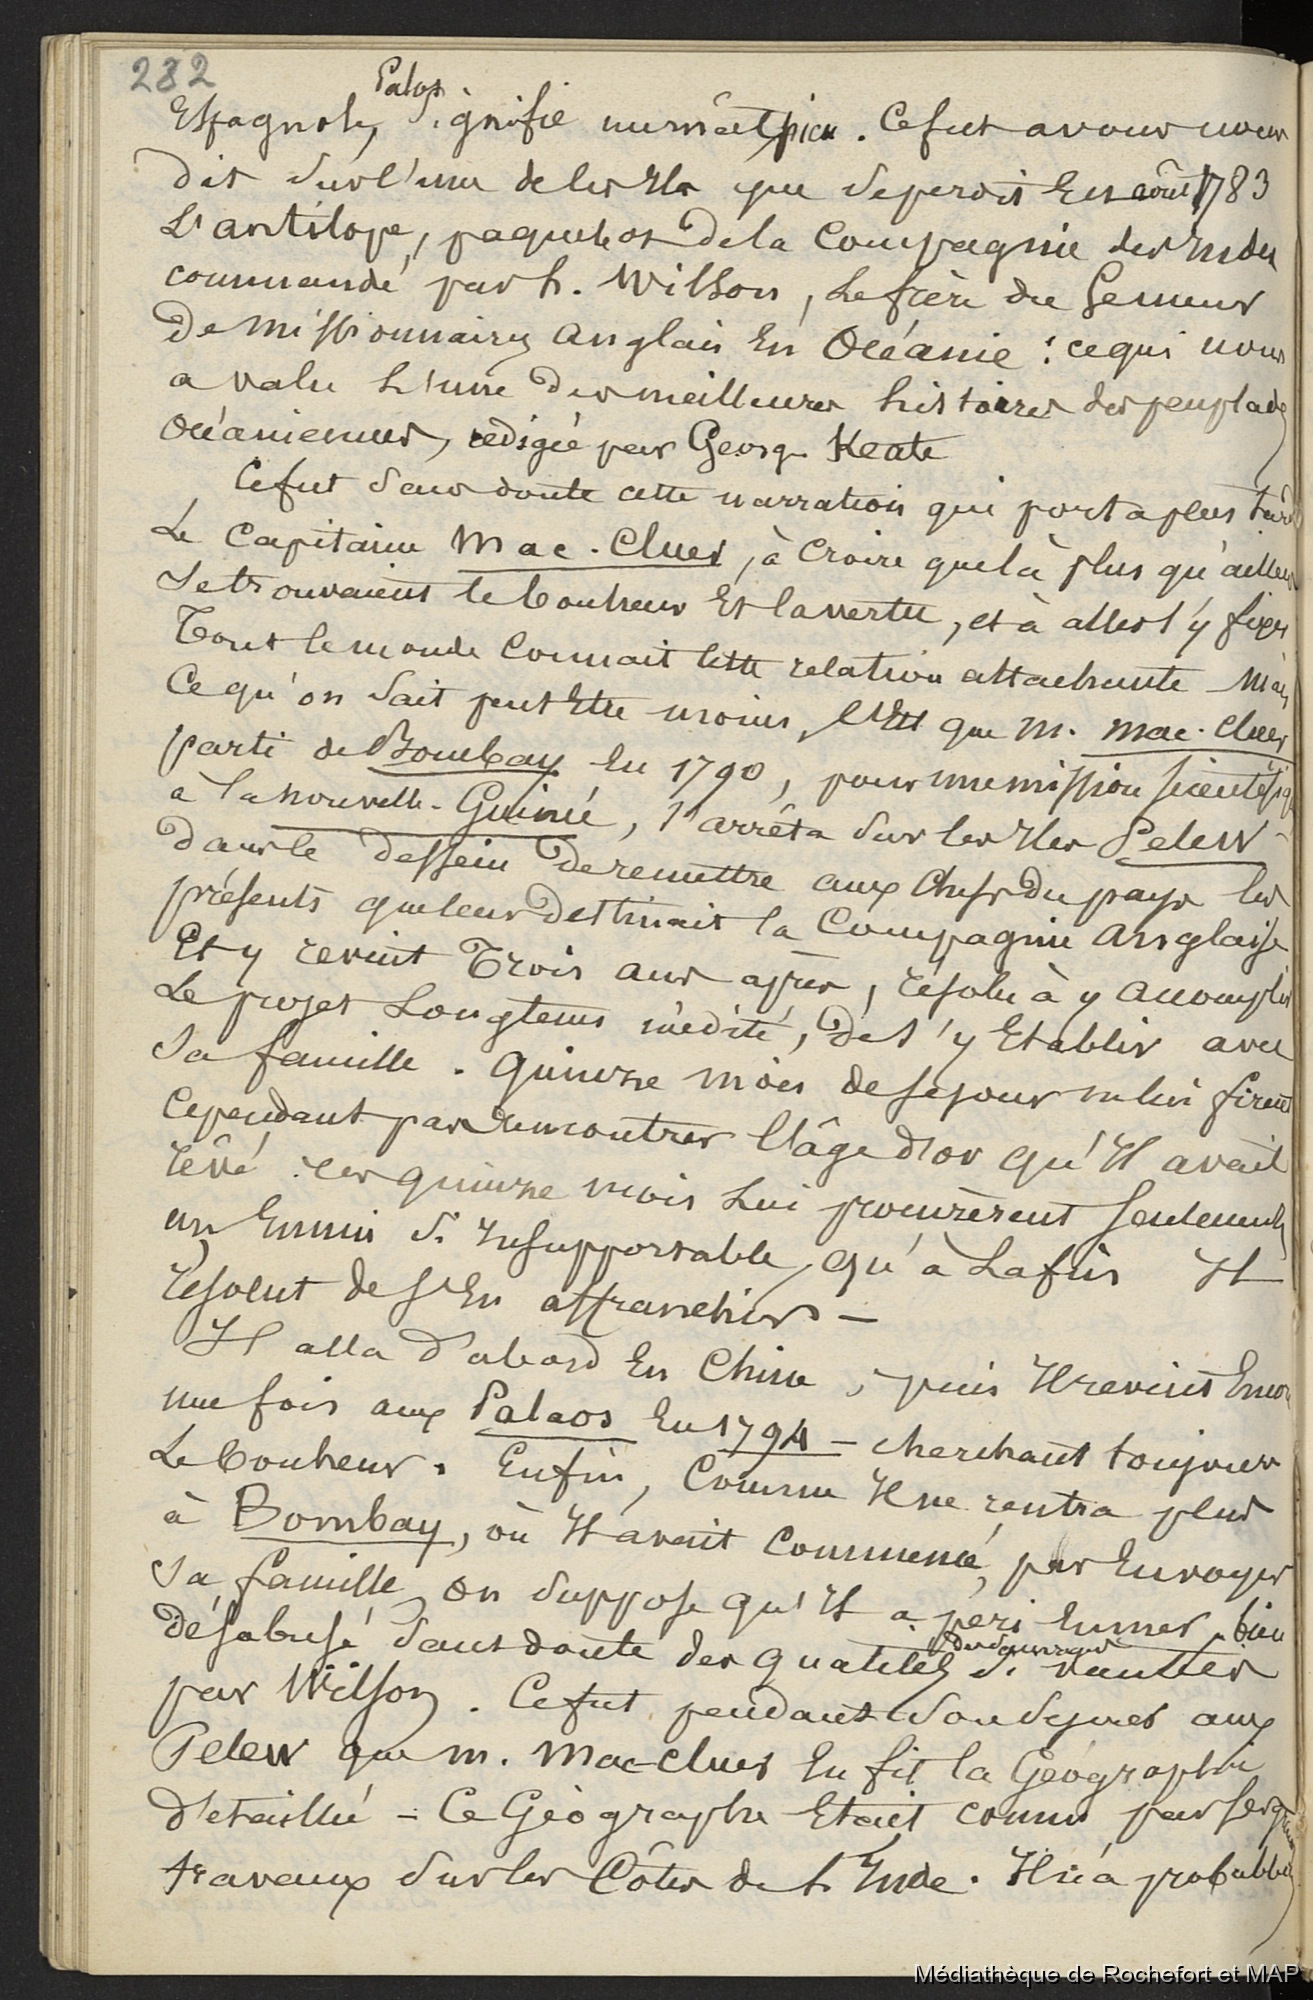 282
Palos
Espagnole, signifie un mât, pieu. Ce fut avons nous
dit sur l'une de les Iles que se perdit En août 1783
L'antilope, paquebot de la Compagnie des Indes
commandé par h. Wilson, le frère du
De Missionnaires anglais En Océanie : ce qui nous
a valu l'une des meilleures histoires des peuplades
Océaniennes, rédigée par Georg. Keate
Ce fut sans doute cette narration qui porta plus tard
Le Capitaine Mac-Cluer, à Croire que là plus qu'ailleurs
se trouvaient le bonheur Et la vertu, et à aller s'y fixer
Tout le monde Connait cette relation attachante Mais
Ce qu'on sait peut Etre moins, C'Est que M. Mac-Cluer
parti de Bombay En 1790, pour une mission scientifique
à la nouvelle-Guinée, s'arrêta sur les Iles Pelew -
dans le dessein De remettre aux Chefs du pays les
présents que leur Destinait la Compagnie anglaise
Et y revint Trois ans après, résolu à y accomplir
Le projet Longtems médité, de s'y Etablir avec
sa famille. Quinze mois de sejour ne lui firent
Cependant pas rencontrer l'âge d'or qu'Il avait
rêvé : ces quinze mois Lui procurèrent seulement
un Ennui si Insupportable, qu'à La fin Il
résolut de s'En affranchir -
Il alla d'abord En Chine, puis Il revint Encore
une fois aux Palaos En 1794 - cherchant toujours
Le bonheur. Enfin, Comme Il ne rentra plus
à Bombay, où Il avait Commencé, par Envoyer
sa famille, on suppose qu'Il a péri En mer, bien
désabusé sans doute des qualités si vantées
des sauvages
par Wilson. Ce fut pendant son séjour aux
Pelew que M. Mac-Cluer En fit la Géographie
d'etaillée - Ce Géographe Etait connu par ses grands
travaux sur les Côtes de l'Inde. Il n'a probablem
Médiathèque de Rochefort et MAP